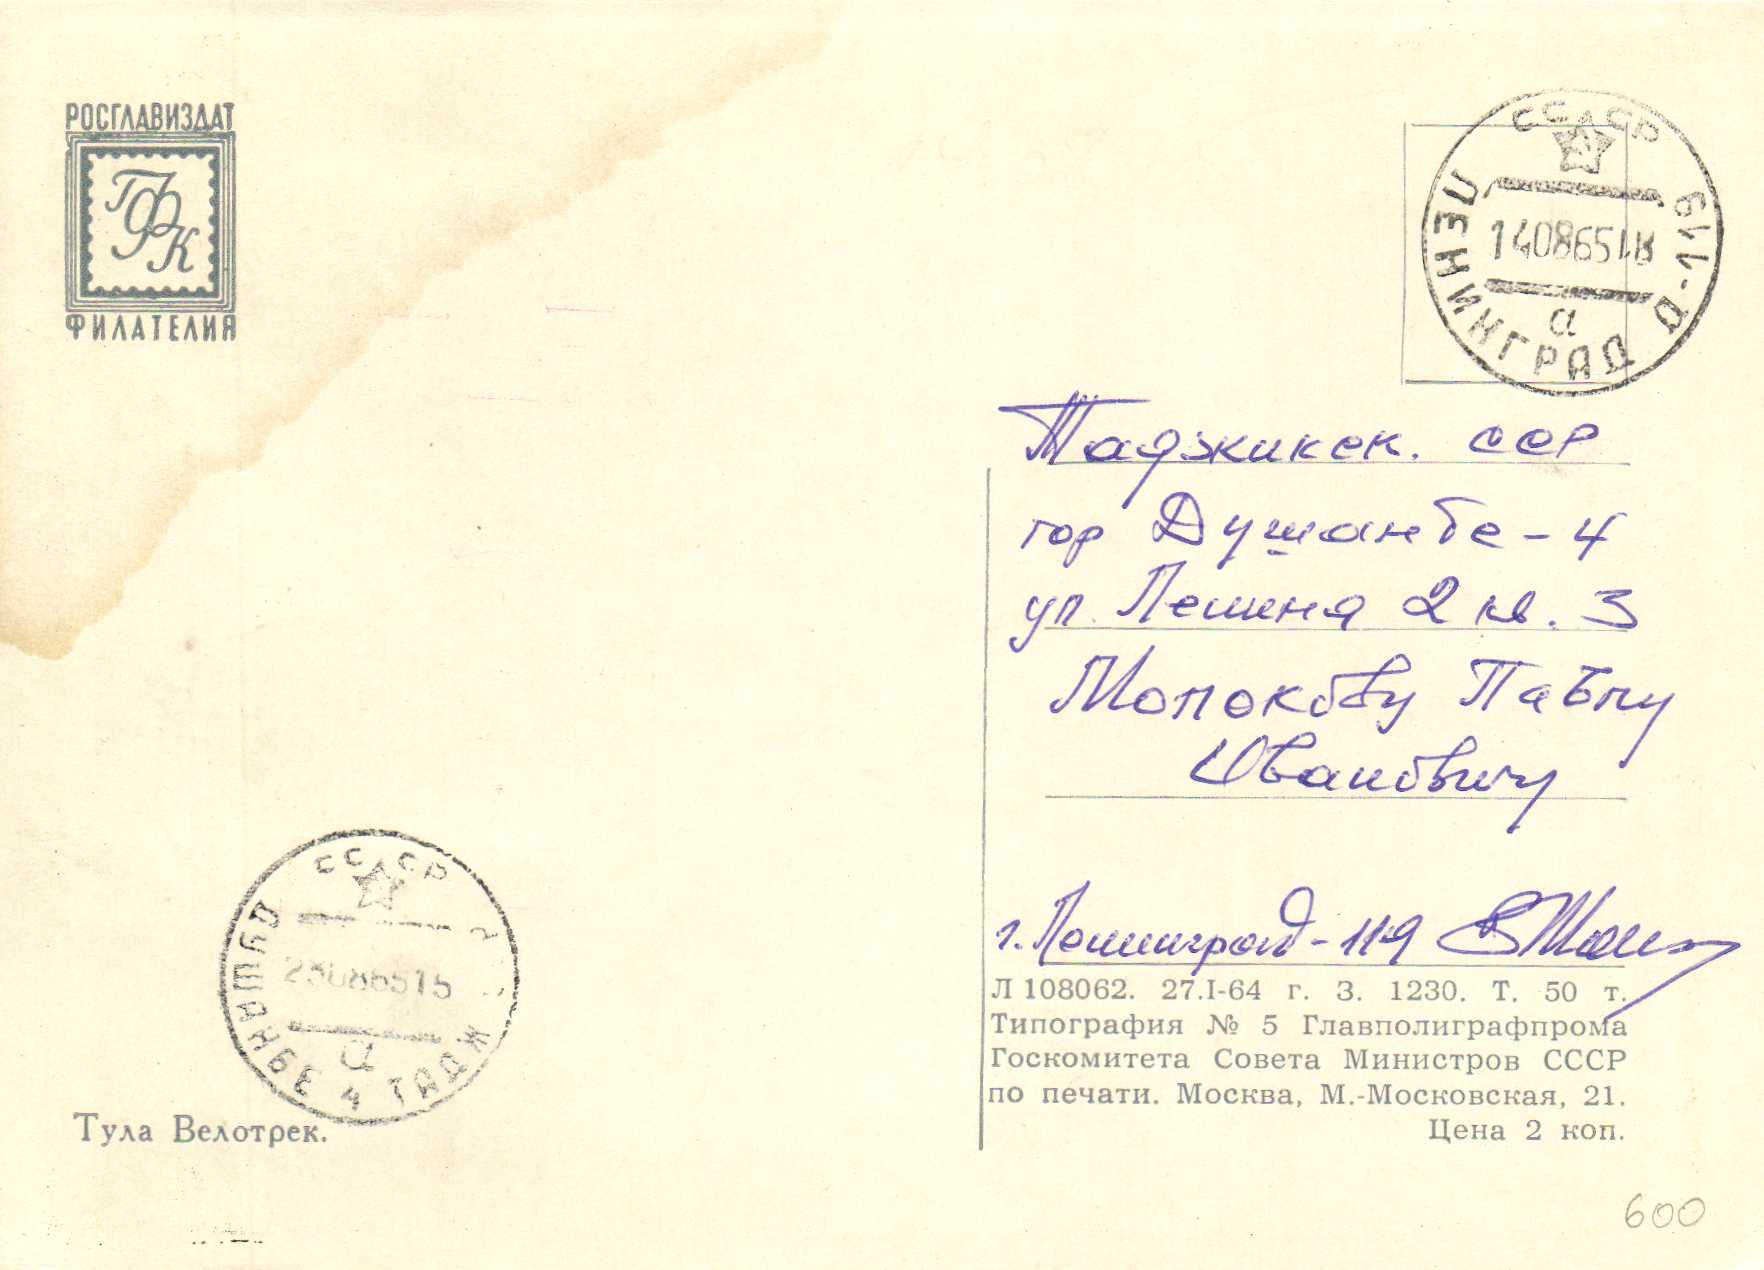 РОСГЛАВИЗДАТ
ГФК
ФИЛАТЕЛИЯ
СССР
ЛЕНИНГРАД Д-119
14086518
а
Таджикск. ССР
гор Душанбе-4
ул. Ленина 2 кв. 3
Молокову Павлу
Ивановичу
г. Ленинград-119
СССР
ДУШАНБЕ 4 ТАДЖ
23086515
а
Тула Велотрек.
Л 108062. 27.I-64 г. З. 1230. Т. 50 т.
Типография № 5 Главполиграфпрома
Госкомитета Совета Министров СССР
по печати. Москва, М.-Московская, 21.
Цена 2 коп.
600